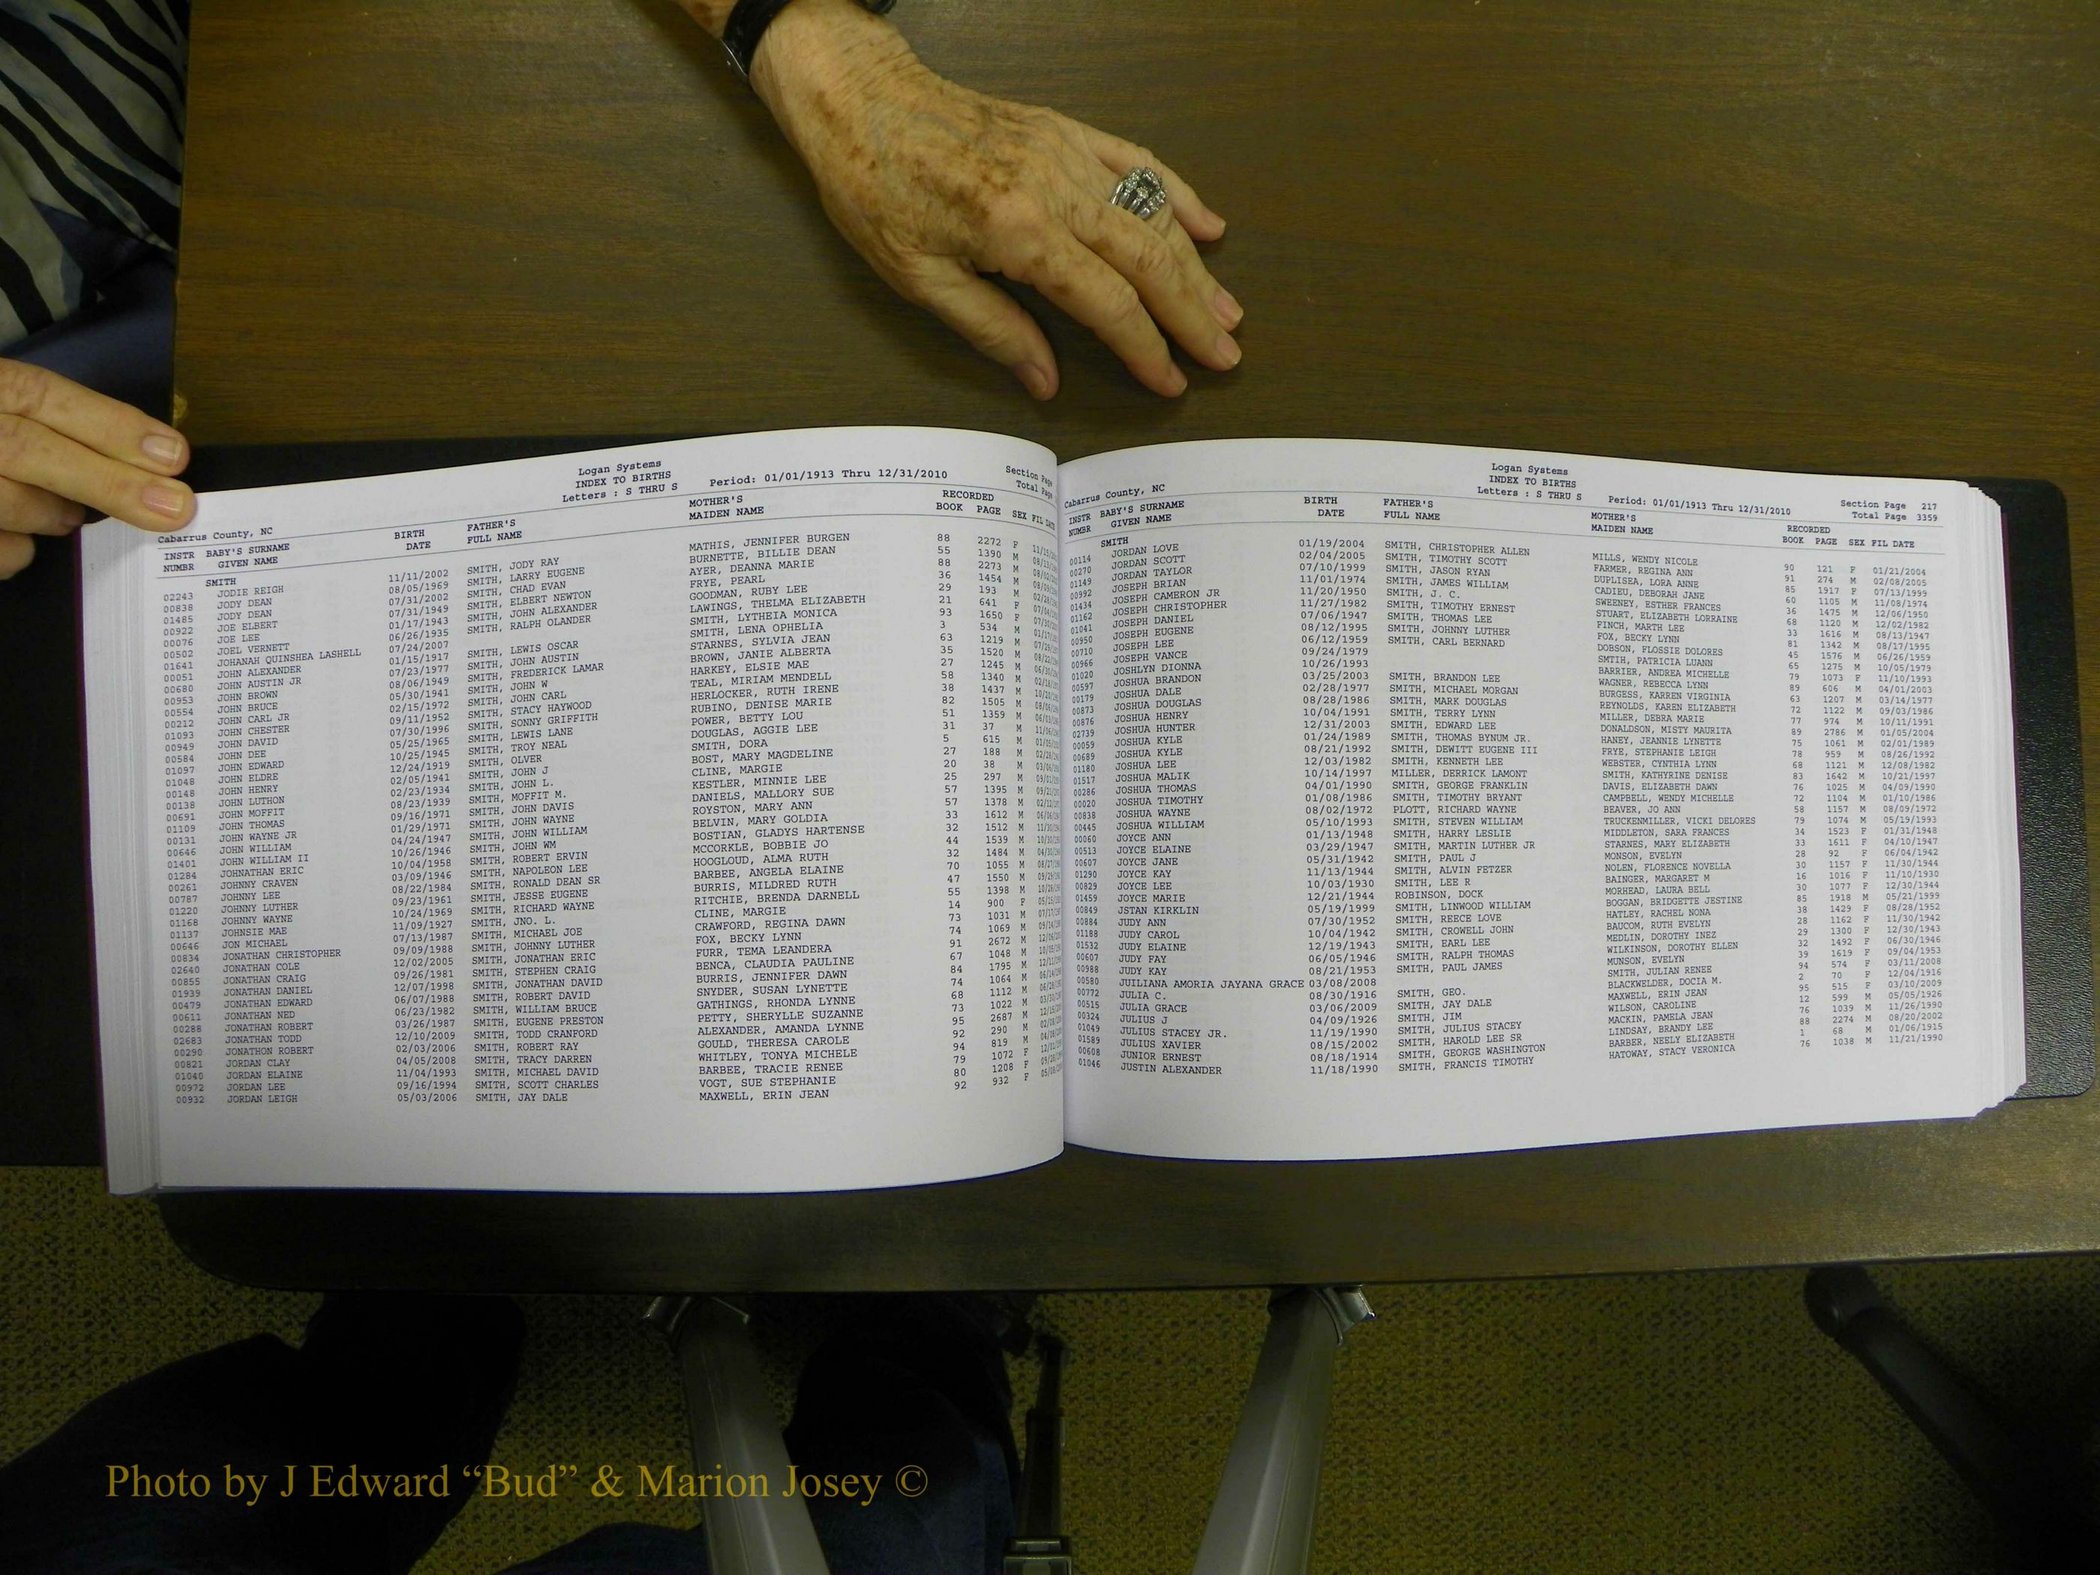 Logan Systems
INDEX TO BIRTHS
Cabarrus County, NC Letters : S THRU S Period: 01/01/1913 Thru 12/31/2010 Section Page Total Page
INSTR NUMBR BABY'S SURNAME GIVEN NAME BIRTH DATE FATHER'S FULL NAME MOTHER'S MAIDEN NAME RECORDED BOOK PAGE SEX FIL DATE
SMITH
02243 JODIE REIGH 11/11/2002 SMITH, JODY RAY MATHIS, JENNIFER BURGEN 88 2272 F
00838 JODY DEAN 08/05/1969 SMITH, LARRY EUGENE BURNETTE, BILLIE DEAN 55 1390 M
01485 JODY DEAN 07/31/2002 SMITH, CHAD EVAN AYER, DEANNA MARIE 88 2273 M
00922 JOE ELBERT 07/31/1949 SMITH, ELBERT NEWTON FRYE, PEARL 36 1454 M
00076 JOE LEE 01/17/1943 SMITH, JOHN ALEXANDER GOODMAN, RUBY LEE 29 193 M
00502 JOEL VERNETT 06/26/1935 SMITH, RALPH OLANDER LAWINGS, THELMA ELIZABETH 21 641 F
01641 JOHANAH QUINSHEA LASHELL 07/24/2007 SMITH, LYTHEIA MONICA 93 1650 F
00051 JOHN ALEXANDER 01/15/1917 SMITH, LEWIS OSCAR SMITH, LENA OPHELIA 3 534 M
00680 JOHN AUSTIN JR 07/23/1977 SMITH, JOHN AUSTIN STARNES, SYLVIA JEAN 63 1219 M
00953 JOHN BROWN 08/06/1949 SMITH, FREDERICK LAMAR BROWN, JANIE ALBERTA 35 1520 M
00554 JOHN BRUCE 05/30/1941 SMITH, JOHN W HARKEY, ELSIE MAE 27 1245 M
00212 JOHN CARL JR 02/15/1972 SMITH, JOHN CARL TEAL, MIRIAM MENDELL 58 1340 M
01093 JOHN CHESTER 09/11/1952 SMITH, STACY HAYWOOD HERLOCKER, RUTH IRENE 38 1437 M
00949 JOHN DAVID 07/30/1996 SMITH, SONNY GRIFFITH RUBINO, DENISE MARIE 82 1505 M
00584 JOHN DEE 05/25/1965 SMITH, LEWIS LANE POWER, BETTY LOU 51 1359 M
01097 JOHN EDWARD 10/25/1945 SMITH, TROY NEAL DOUGLAS, AGGIE LEE 31 37 M
01048 JOHN ELDRE 12/24/1919 SMITH, OLVER SMITH, DORA 5 615 M
00148 JOHN HENRY 02/05/1941 SMITH, JOHN J BOST, MARY MAGDELINE 27 188 M
00138 JOHN LUTHON 02/23/1934 SMITH, JOHN L. CLINE, MARGIE 20 38 M
00691 JOHN MOFFIT 08/23/1939 SMITH, MOFFIT M. KESTLER, MINNIE LEE 25 297 M
01109 JOHN THOMAS 09/16/1971 SMITH, JOHN DAVIS DANIELS, MALLORY SUE 57 1395 M
00131 JOHN WAYNE JR 01/29/1971 SMITH, JOHN WAYNE ROYSTON, MARY ANN 57 1378 M
00646 JOHN WILLIAM 04/24/1947 SMITH, JOHN WILLIAM BELVIN, MARY GOLDIA 33 1612 M
01401 JOHN WILLIAM II 10/26/1946 SMITH, JOHN WM BOSTIAN, GLADYS HARTENSE 32 1512 M
01284 JOHNATHAN ERIC 10/04/1958 SMITH, ROBERT ERVIN MCCORKLE, BOBBIE JO 44 1539 M
00261 JOHNNY CRAVEN 03/09/1946 SMITH, NAPOLEON LEE HOOGLOUD, ALMA RUTH 32 1484 M
00787 JOHNNY LEE 08/22/1984 SMITH, RONALD DEAN SR BARBEE, ANGELA ELAINE 70 1055 M
01220 JOHNNY LUTHER 09/23/1961 SMITH, JESSE EUGENE BURRIS, MILDRED RUTH 47 1550 M
01168 JOHNNY WAYNE 10/24/1969 SMITH, RICHARD WAYNE RITCHIE, BRENDA DARNELL 55 1398 M
01137 JOHNSIE MAE 11/09/1927 SMITH, JNO. L. CLINE, MARGIE 14 900 F
00646 JON MICHAEL 07/13/1987 SMITH, MICHAEL JOE CRAWFORD, REGINA DAWN 73 1031 M
00834 JONATHAN CHRISTOPHER 09/09/1988 SMITH, JOHNNY LUTHER FOX, BECKY LYNN 74 1069 M
02640 JONATHAN COLE 12/02/2005 SMITH, JONATHAN ERIC FURR, TEMA LEANDERA 91 2672 M
00855 JONATHAN CRAIG 09/26/1981 SMITH, STEPHEN CRAIG BENCA, CLAUDIA PAULINE 67 1048 M
01939 JONATHAN DANIEL 12/07/1998 SMITH, JONATHAN DAVID BURRIS, JENNIFER DAWN 84 1795 M
00479 JONATHAN EDWARD 06/07/1988 SMITH, ROBERT DAVID SNYDER, SUSAN LYNETTE 74 1064 M
00611 JONATHAN NED 06/23/1982 SMITH, WILLIAM BRUCE GATHINGS, RHONDA LYNNE 68 1112 M
00288 JONATHAN ROBERT 03/26/1987 SMITH, EUGENE PRESTON PETTY, SHERYLLE SUZANNE 73 1022 M
02683 JONATHAN TODD 12/10/2009 SMITH, TODD CRANFORD ALEXANDER, AMANDA LYNNE 95 2687 M
00290 JONATHON ROBERT 02/03/2006 SMITH, ROBERT RAY GOULD, THERESA CAROLE 92 290 M
00821 JORDAN CLAY 04/05/2008 SMITH, TRACY DARREN WHITLEY, TONYA MICHELE 94 819 M
01040 JORDAN ELAINE 11/04/1993 SMITH, MICHAEL DAVID BARBEE, TRACIE RENEE 79 1072 F
00972 JORDAN LEE 09/16/1994 SMITH, SCOTT CHARLES VOGT, SUE STEPHANIE 80 1208 F
00932 JORDAN LEIGH 05/03/2006 SMITH, JAY DALE MAXWELL, ERIN JEAN 92 932 F
Logan Systems
INDEX TO BIRTHS
Cabarrus County, NC Letters : S THRU S Period: 01/01/1913 Thru 12/31/2010 Section Page 217 Total Page 3359
INSTR NUMBR BABY'S SURNAME GIVEN NAME BIRTH DATE FATHER'S FULL NAME MOTHER'S MAIDEN NAME RECORDED BOOK PAGE SEX FIL DATE
SMITH
00114 JORDAN LOVE 01/19/2004 SMITH, CHRISTOPHER ALLEN MILLS, WENDY NICOLE 90 121 F 01/21/2004
00270 JORDAN SCOTT 02/04/2005 SMITH, TIMOTHY SCOTT FARMER, REGINA ANN 91 274 M 02/08/2005
01149 JORDAN TAYLOR 07/10/1999 SMITH, JASON RYAN DUPLISEA, LORA ANNE 85 1917 F 07/13/1999
00992 JOSEPH BRIAN 11/01/1974 SMITH, JAMES WILLIAM CADIEU, DEBORAH JANE 60 1105 M 11/08/1974
01434 JOSEPH CAMERON JR 11/20/1950 SMITH, J. C. SWEENEY, ESTHER FRANCES 36 1475 M 12/06/1950
01162 JOSEPH CHRISTOPHER 11/27/1982 SMITH, TIMOTHY ERNEST STUART, ELIZABETH LORRAINE 68 1120 M 12/02/1982
01041 JOSEPH DANIEL 07/06/1947 SMITH, THOMAS LEE FINCH, MARTH LEE 33 1616 M 08/13/1947
00950 JOSEPH EUGENE 08/12/1995 SMITH, JOHNNY LUTHER FOX, BECKY LYNN 81 1342 M 08/17/1995
00710 JOSEPH LEE 06/12/1959 SMITH, CARL BERNARD DOBSON, FLOSSIE DOLORES 45 1576 M 06/26/1959
00966 JOSEPH VANCE 09/24/1979 SMTIH, PATRICIA LUANN 65 1275 M 10/05/1979
01020 JOSHLYN DIONNA 10/26/1993 BARRIER, ANDREA MICHELLE 79 1073 F 11/10/1993
00597 JOSHUA BRANDON 03/25/2003 SMITH, BRANDON LEE WAGNER, REBECCA LYNN 89 606 M 04/01/2003
00179 JOSHUA DALE 02/28/1977 SMITH, MICHAEL MORGAN BURGESS, KARREN VIRGINIA 63 1207 M 03/14/1977
00873 JOSHUA DOUGLAS 08/28/1986 SMITH, MARK DOUGLAS REYNOLDS, KAREN ELIZABETH 72 1122 M 09/03/1986
00876 JOSHUA HENRY 10/04/1991 SMITH, TERRY LYNN MILLER, DEBRA MARIE 77 974 M 10/11/1991
02739 JOSHUA HUNTER 12/31/2003 SMITH, EDWARD LEE DONALDSON, MISTY MAURITA 89 2786 M 01/05/2004
00059 JOSHUA KYLE 01/24/1989 SMITH, THOMAS BYNUM JR. HANEY, JEANNIE LYNETTE 75 1061 M 02/01/1989
00689 JOSHUA KYLE 08/21/1992 SMITH, DEWITT EUGENE III FRYE, STEPHANIE LEIGH 78 959 M 08/26/1992
01180 JOSHUA LEE 12/03/1982 SMITH, KENNETH LEE WEBSTER, CYNTHIA LYNN 68 1121 M 12/08/1982
01517 JOSHUA MALIK 10/14/1997 MILLER, DERRICK LAMONT SMITH, KATHYRINE DENISE 83 1642 M 10/21/1997
00286 JOSHUA THOMAS 04/01/1990 SMITH, GEORGE FRANKLIN DAVIS, ELIZABETH DAWN 76 1025 M 04/09/1990
00020 JOSHUA TIMOTHY 01/08/1986 SMITH, TIMOTHY BRYANT CAMPBELL, WENDY MICHELLE 72 1104 M 01/10/1986
00838 JOSHUA WAYNE 08/02/1972 PLOTT, RICHARD WAYNE BEAVER, JO ANN 58 1157 M 08/09/1972
00445 JOSHUA WILLIAM 05/10/1993 SMITH, STEVEN WILLIAM TRUCKENMILLER, VICKI DELORES 79 1074 M 05/19/1993
00060 JOYCE ANN 01/13/1948 SMITH, HARRY LESLIE MIDDLETON, SARA FRANCES 34 1523 F 01/31/1948
00513 JOYCE ELAINE 03/29/1947 SMITH, MARTIN LUTHER JR STARNES, MARY ELIZABETH 33 1611 F 04/10/1947
00607 JOYCE JANE 05/31/1942 SMITH, PAUL J MONSON, EVELYN 28 92 F 06/04/1942
01290 JOYCE KAY 11/13/1944 SMITH, ALVIN FETZER NOLEN, FLORENCE NOVELLA 30 1157 F 11/30/1944
00829 JOYCE LEE 10/03/1930 SMITH, LEE R BAINGER, MARGARET M 16 1016 F 11/10/1930
01459 JOYCE MARIE 12/21/1944 ROBINSON, DOCK MORHEAD, LAURA BELL 30 1077 F 12/30/1944
00849 JSTAN KIRKLIN 05/19/1999 SMITH, LINWOOD WILLIAM BOGGAN, BRIDGETTE JESTINE 85 1918 M 05/21/1999
00884 JUDY ANN 07/30/1952 SMITH, REECE LOVE HATLEY, RACHEL NONA 38 1429 F 08/28/1952
01188 JUDY CAROL 10/04/1942 SMITH, CROWELL JOHN BAUCOM, RUTH EVELYN 28 1162 F 11/30/1942
01532 JUDY ELAINE 12/19/1943 SMITH, EARL LEE MEDLIN, DOROTHY INEZ 29 1300 F 12/30/1943
00607 JUDY FAY 06/05/1946 SMITH, RALPH THOMAS WILKINSON, DOROTHY ELLEN 32 1492 F 06/30/1946
00988 JUDY KAY 08/21/1953 SMITH, PAUL JAMES MUNSON, EVELYN 39 1619 F 09/04/1953
00580 JUILIANA AMORIA JAYANA GRACE 03/08/2008 SMITH, JULIAN RENEE 94 574 F 03/11/2008
00772 JULIA C. 08/30/1916 SMITH, GEO. BLACKWELDER, DOCIA M. 2 70 F 12/04/1916
00515 JULIA GRACE 03/06/2009 SMITH, JAY DALE MAXWELL, ERIN JEAN 95 515 F 03/10/2009
00324 JULIUS J 04/09/1926 SMITH, JIM WILSON, CAROLINE 12 599 M 05/05/1926
01049 JULIUS STACEY JR. 11/19/1990 SMITH, JULIUS STACEY MACKIN, PAMELA JEAN 76 1039 M 11/26/1990
01589 JULIUS XAVIER 08/15/2002 SMITH, HAROLD LEE SR LINDSAY, BRANDY LEE 88 2274 M 08/20/2002
00608 JUNIOR ERNEST 08/18/1914 SMITH, GEORGE WASHINGTON BARBER, NEELY ELIZABETH 1 68 M 01/06/1915
01046 JUSTIN ALEXANDER 11/18/1990 SMITH, FRANCIS TIMOTHY HATOWAY, STACY VERONICA 76 1038 M 11/21/1990
Photo by J Edward “Bud” & Marion Josey ©